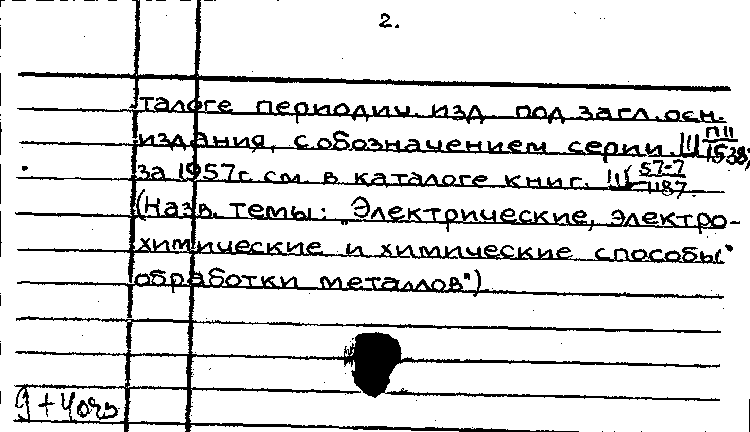 2.
талоге периодич. изд. под загл. осн.
издания, с обозначением серии. Ш П11/1538,
за 1957г. см. в каталоге книг. Ш 57-7/1187.
(Назв. темы: "Электрические, электро-
химические и химические способы
обработки металлов")